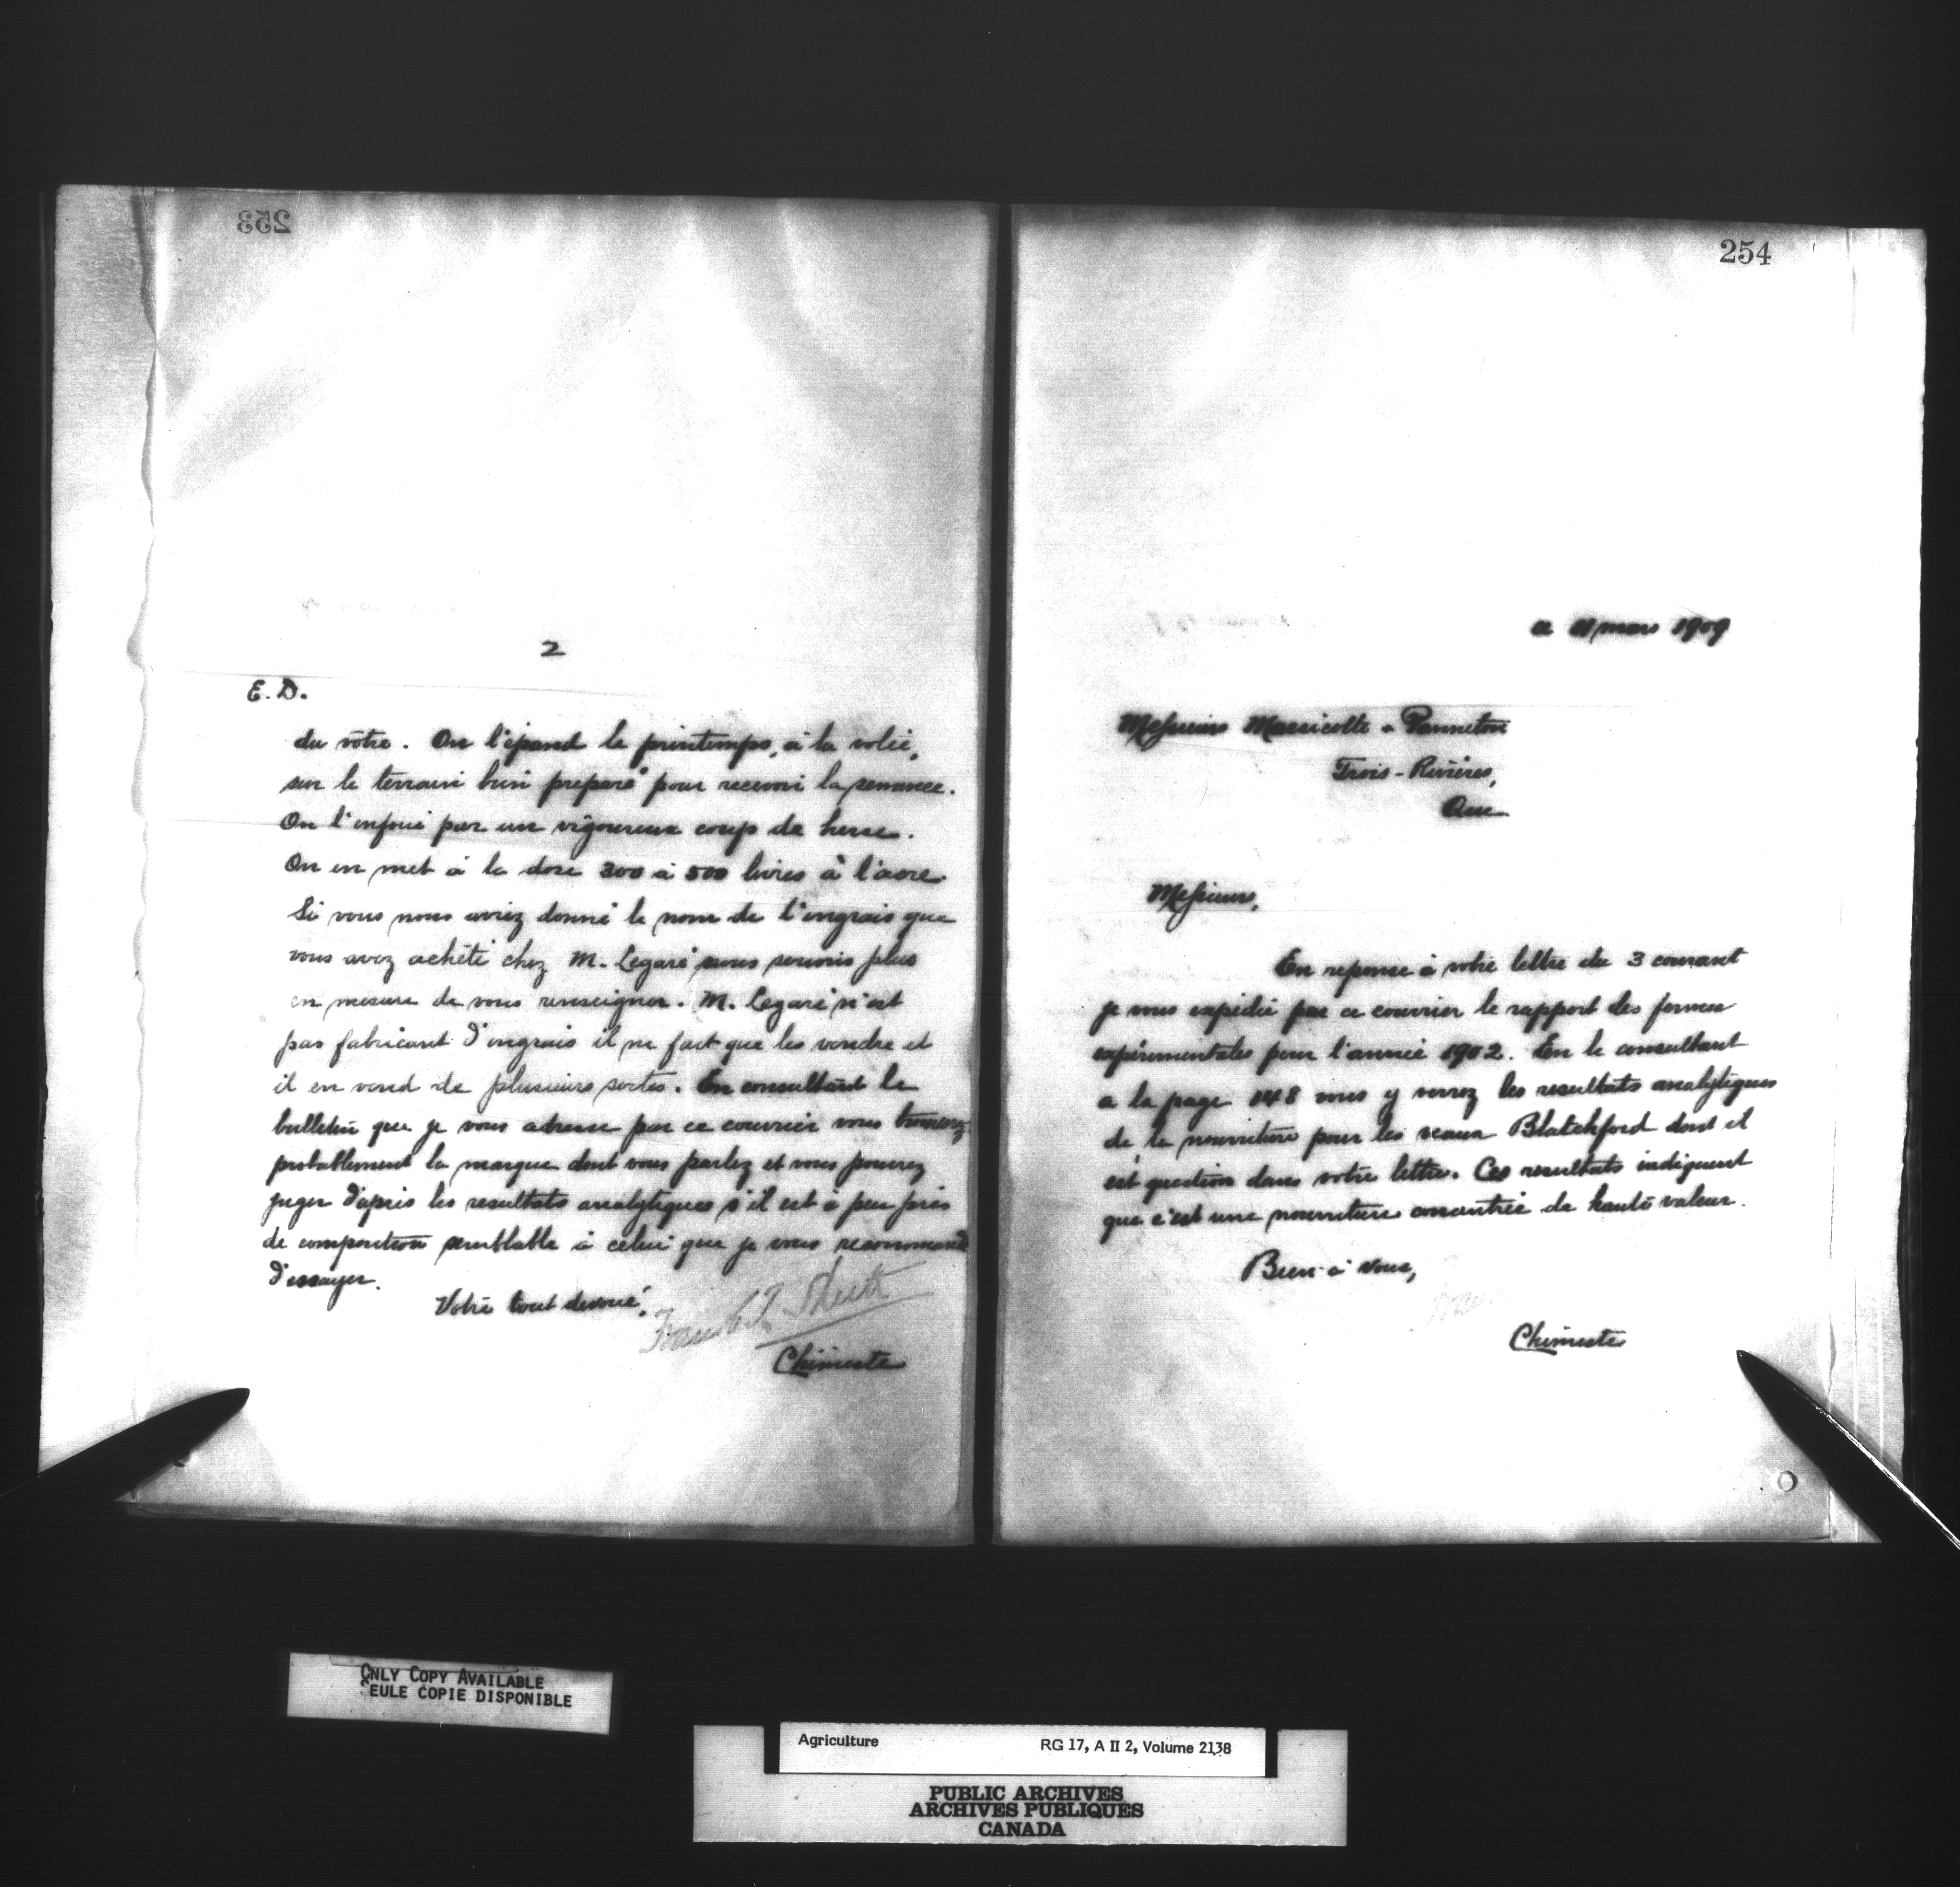 253
2
E. D.
du vôtre. On l'épand le printemps, à la volée,
sur le terrain bien preparé pour recevoir la semence.
On l'enfoui par un vigoureux coup de herse.
On en met à la dose 300 à 500 livres à l'acre.
Si vous nous aviez donné le nom de l'engrais que
vous avez acheté chez M. Legaré nous serions plus
en mesure de vous renseigner. M. Legaré n'est
pas fabricant d'engrais il ne fait que les vendre et
il en vend de plusieurs sortes. En consultant le
bulletin que je vous adresse par ce courrier vous trouverez
probablement la marque dont vous parlez et vous pourrez
juger d'après les resultats analytiques s'il est à peu près
de composition semblable à celui que je vous recommande
d'essayer.
Votre tout devoué,
Frank T. Shutt
Chimiste
254
mars 1909
Messieurs Massicotte & Panneton
Trois-Rivières,
Que
Messieurs,
En reponse à votre lettre du 3 courant
je vous expédie par ce courrier le rapport des fermes
expérimentales pour l'année 1902. En le consultant
a la page 148 vous y verrez les resultats analytiques
de la nourriture pour les veaux Blatchford dont il
est question dans votre lettre. Ces resultats indiquent
que c'est une nourriture concentrée de haute valeur.
Bien à vous,
Chimiste
ONLY COPY AVAILABLE
SEULE COPIE DISPONIBLE
Agriculture RG 17, A II 2, Volume 2138
PUBLIC ARCHIVES
ARCHIVES PUBLIQUES
CANADA